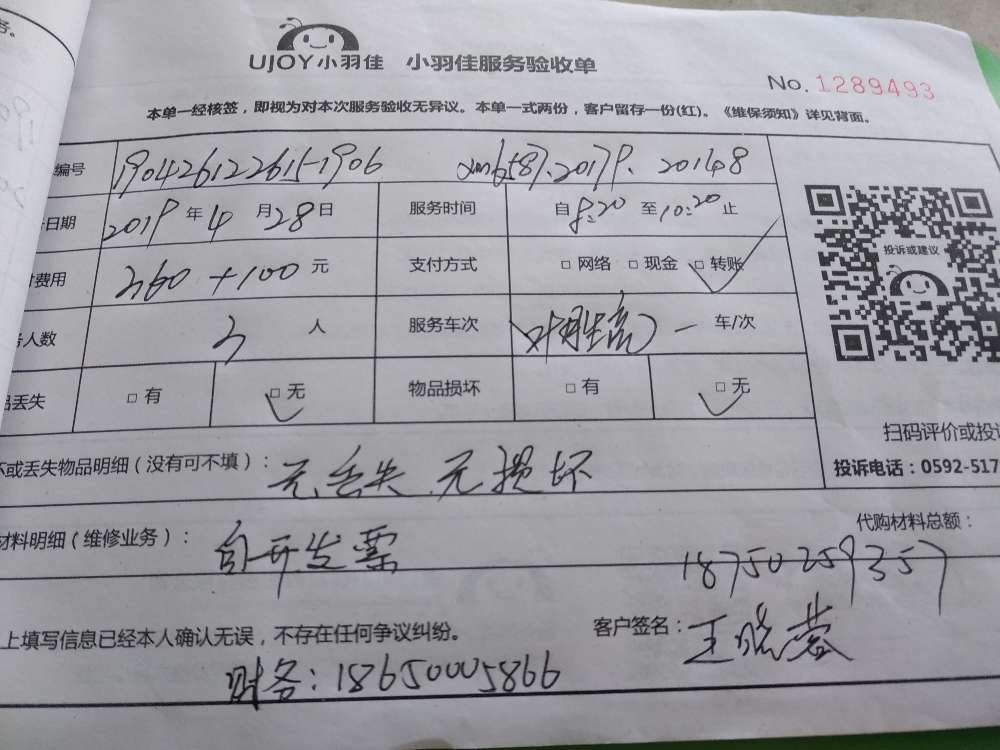 务。
UJOY小羽佳 小羽佳服务验收单
No. 1289493
本单一经核签，即视为对本次服务验收无异议。本单一式两份，客户留存一份(红)。《维保须知》详见背面。
编号 190426122615-1906 20179. 201448
日期 2019 年 4 月 28 日 服务时间 自 8:20 至 10:20 止
费用 360 + 100 元 支付方式 □ 网络 □ 现金 □ 转账
人数 3 人 服务车次 一 车/次
丢失 □ 有 □ 无 物品损坏 □ 有 □ 无
投诉或建议
扫码评价或投诉
投诉电话：0592-517
坏或丢失物品明细（没有可不填）： 无丢失 无损坏
代购材料总额：
材料明细（维修业务）： 自开发票
18750259357
上填写信息已经本人确认无误，不存在任何争议纠纷。 客户签名： 王晓蓉
财务：18650005866